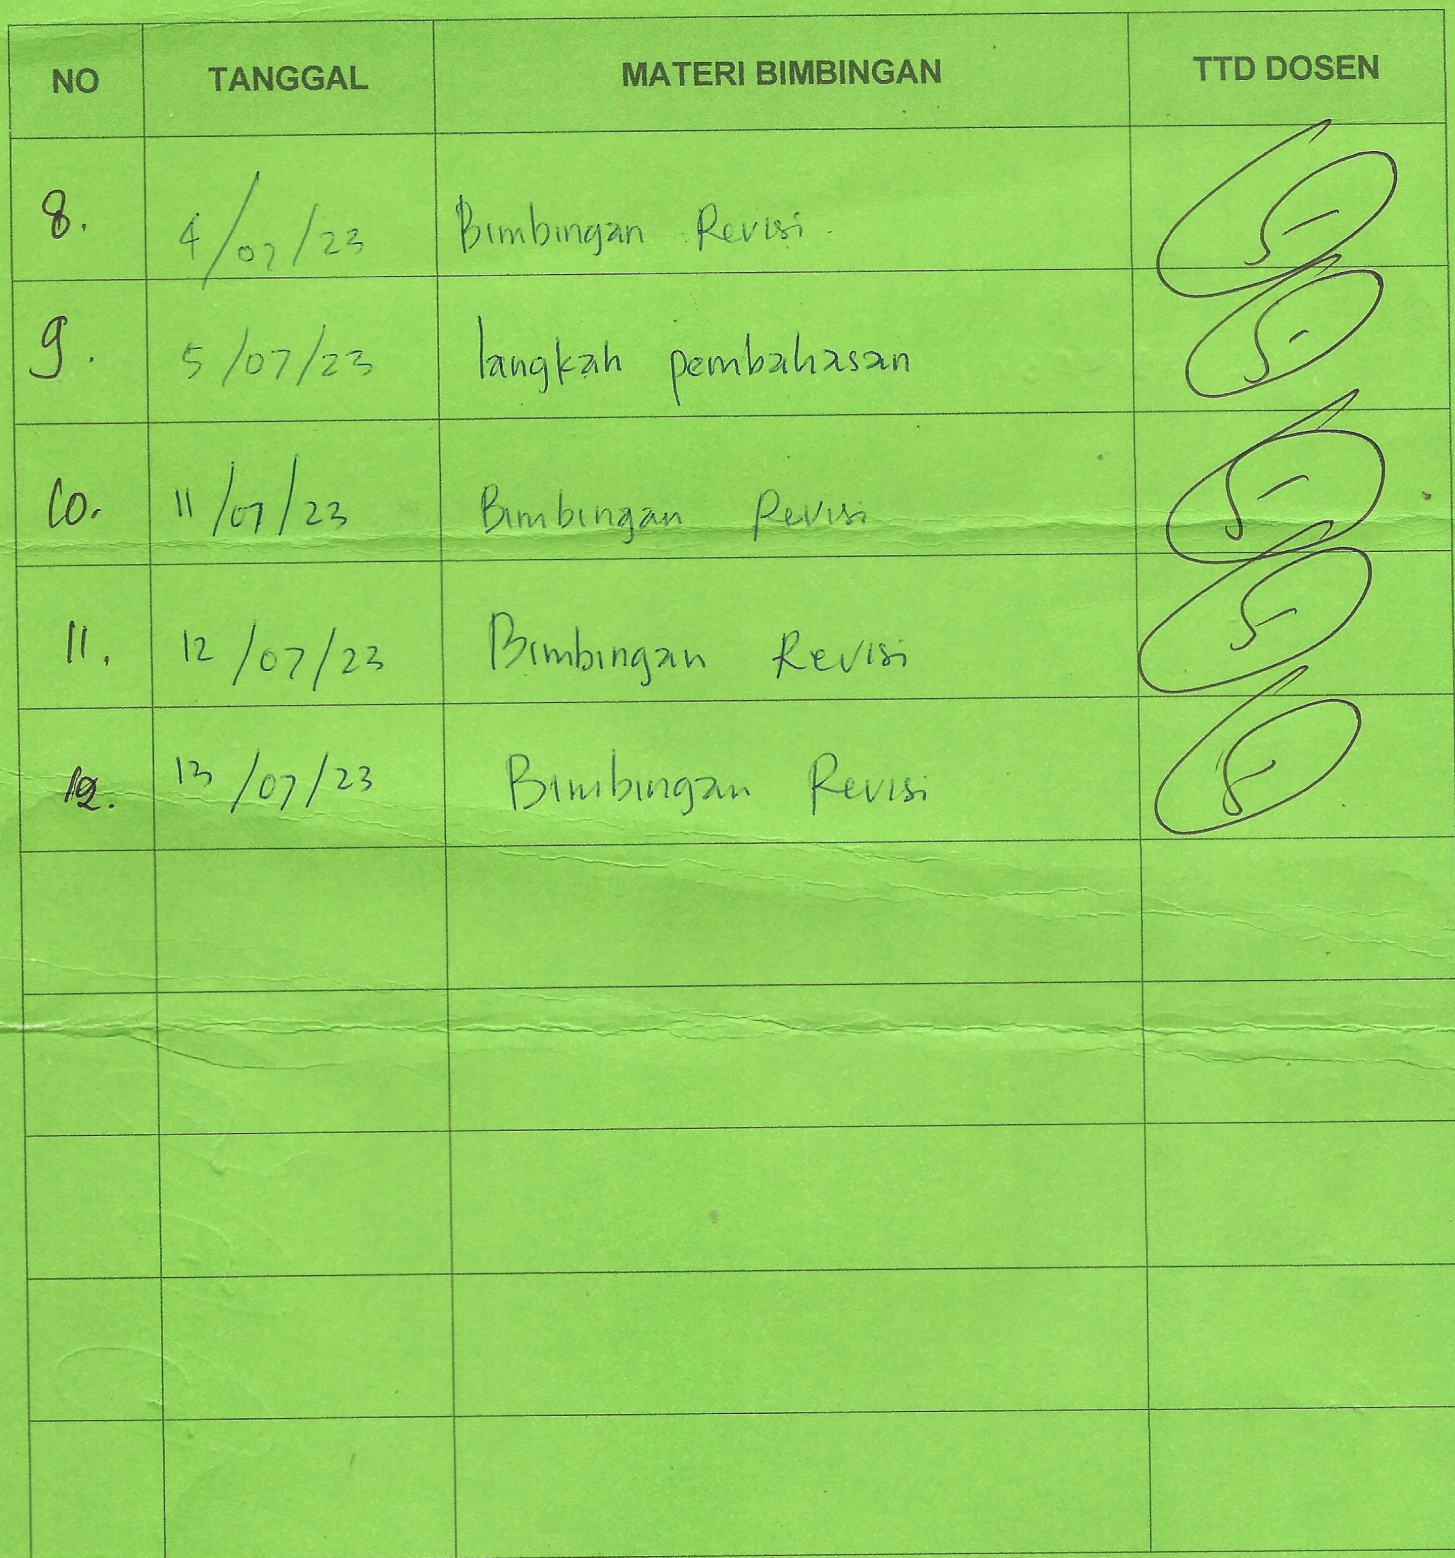 NO TANGGAL MATERI BIMBINGAN TTD DOSEN
8. 4/07/23 Bimbingan Revisi.
9. 5/07/23 langkah pembahasan
10. 11/07/23 Bimbingan Revisi
11. 12/07/23 Bimbingan Revisi
12. 13/07/23 Bimbingan Revisi